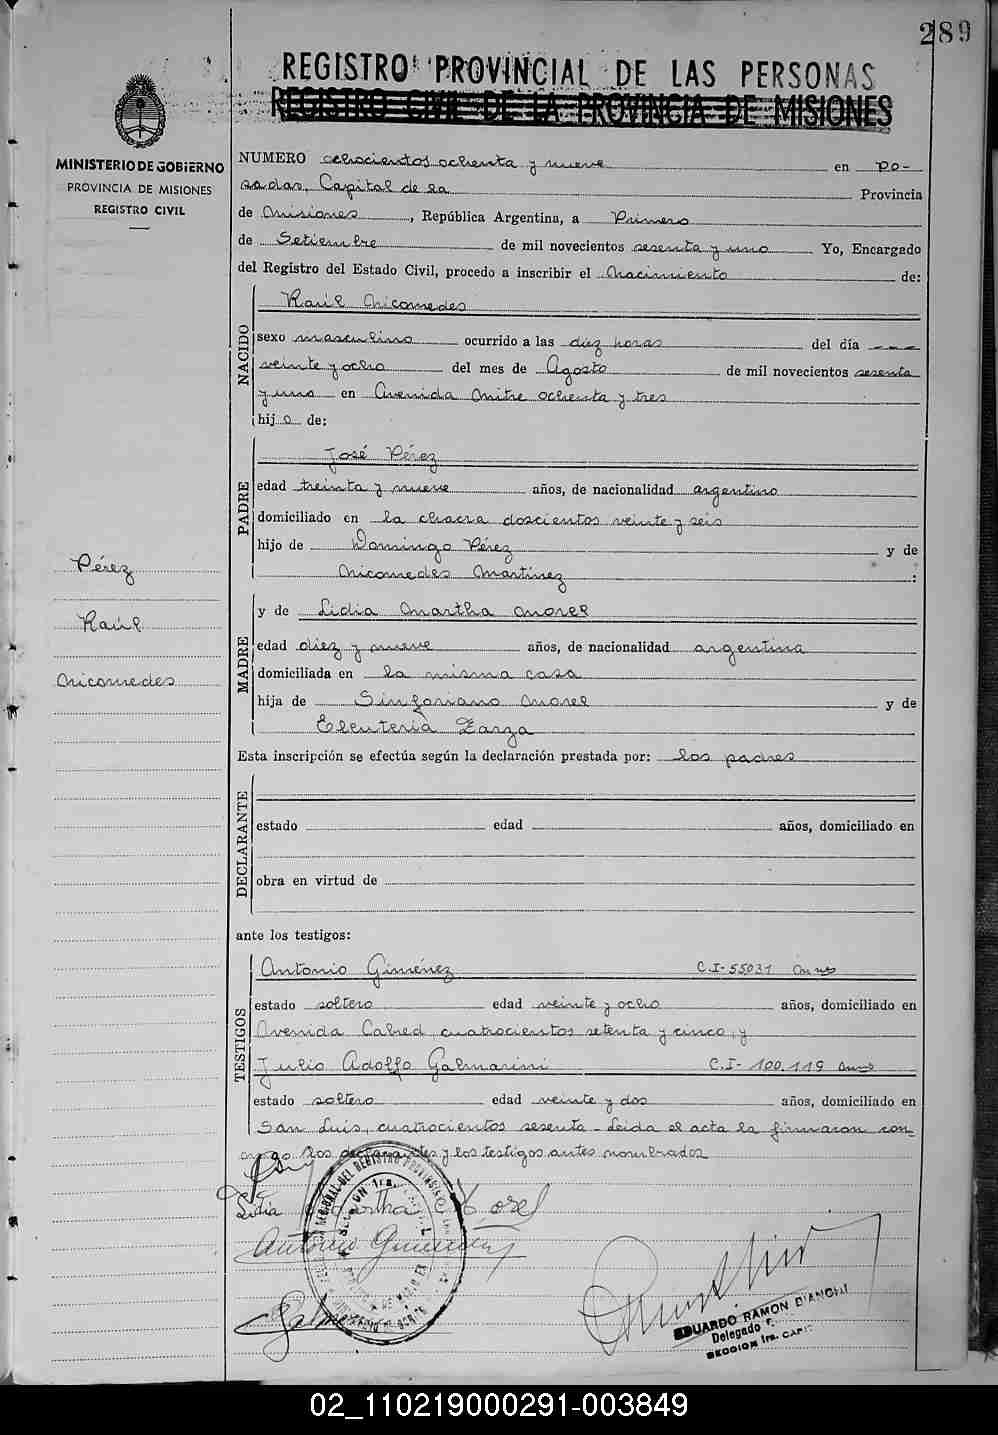 289
REGISTRO PROVINCIAL DE LAS PERSONAS
REGISTRO CIVIL DE LA PROVINCIA DE MISIONES
MINISTERIO DE GOBIERNO
PROVINCIA DE MISIONES
REGISTRO CIVIL
NUMERO ochocientos ochenta y nueve en Po-
sadas, Capital de la Provincia
de Misiones, República Argentina, a Primero
de Setiembre de mil novecientos sesenta y uno Yo, Encargado
del Registro del Estado Civil, procedo a inscribir el Nacimiento de:
NACIDO
Raúl Nicomedes
sexo masculino ocurrido a las diez horas del día ---
veinte y ocho del mes de Agosto de mil novecientos sesenta
y uno en Avenida Mitre ochenta y tres
hijo de:
PADRE
José Pérez
edad treinta y nueve años, de nacionalidad argentino
domiciliado en la chacra doscientos veinte y seis
hijo de Domingo Pérez y de
Nicomedes Martínez :
Pérez
Raúl
Nicomedes
MADRE
y de Lidia Martha Morel
edad diez y nueve años, de nacionalidad argentina
domiciliada en la misma casa
hija de Sinforiano Morel y de
Eleuteria Zarza
Esta inscripción se efectúa según la declaración prestada por: los padres
DECLARANTE
estado edad años, domiciliado en
obra en virtud de
ante los testigos:
TESTIGOS
Antonio Giménez C.I-55031 Mnes
estado soltero edad veinte y ocho años, domiciliado en
Avenida Cabred, cuatrocientos setenta y cinco, y
Julio Adolfo Galmarini C.I-100.119 Mnes
estado soltero edad veinte y dos años, domiciliado en
San Luis, cuatrocientos sesenta - Leida el acta la firmaron con-
migo los declarantes y los testigos antes nombrados
Lidia Martha Morel
Antonio Giménez
EDUARDO RAMON BIANCHI
Delegado
SECCION 1ra. CAPITAL
02_110219000291-003849